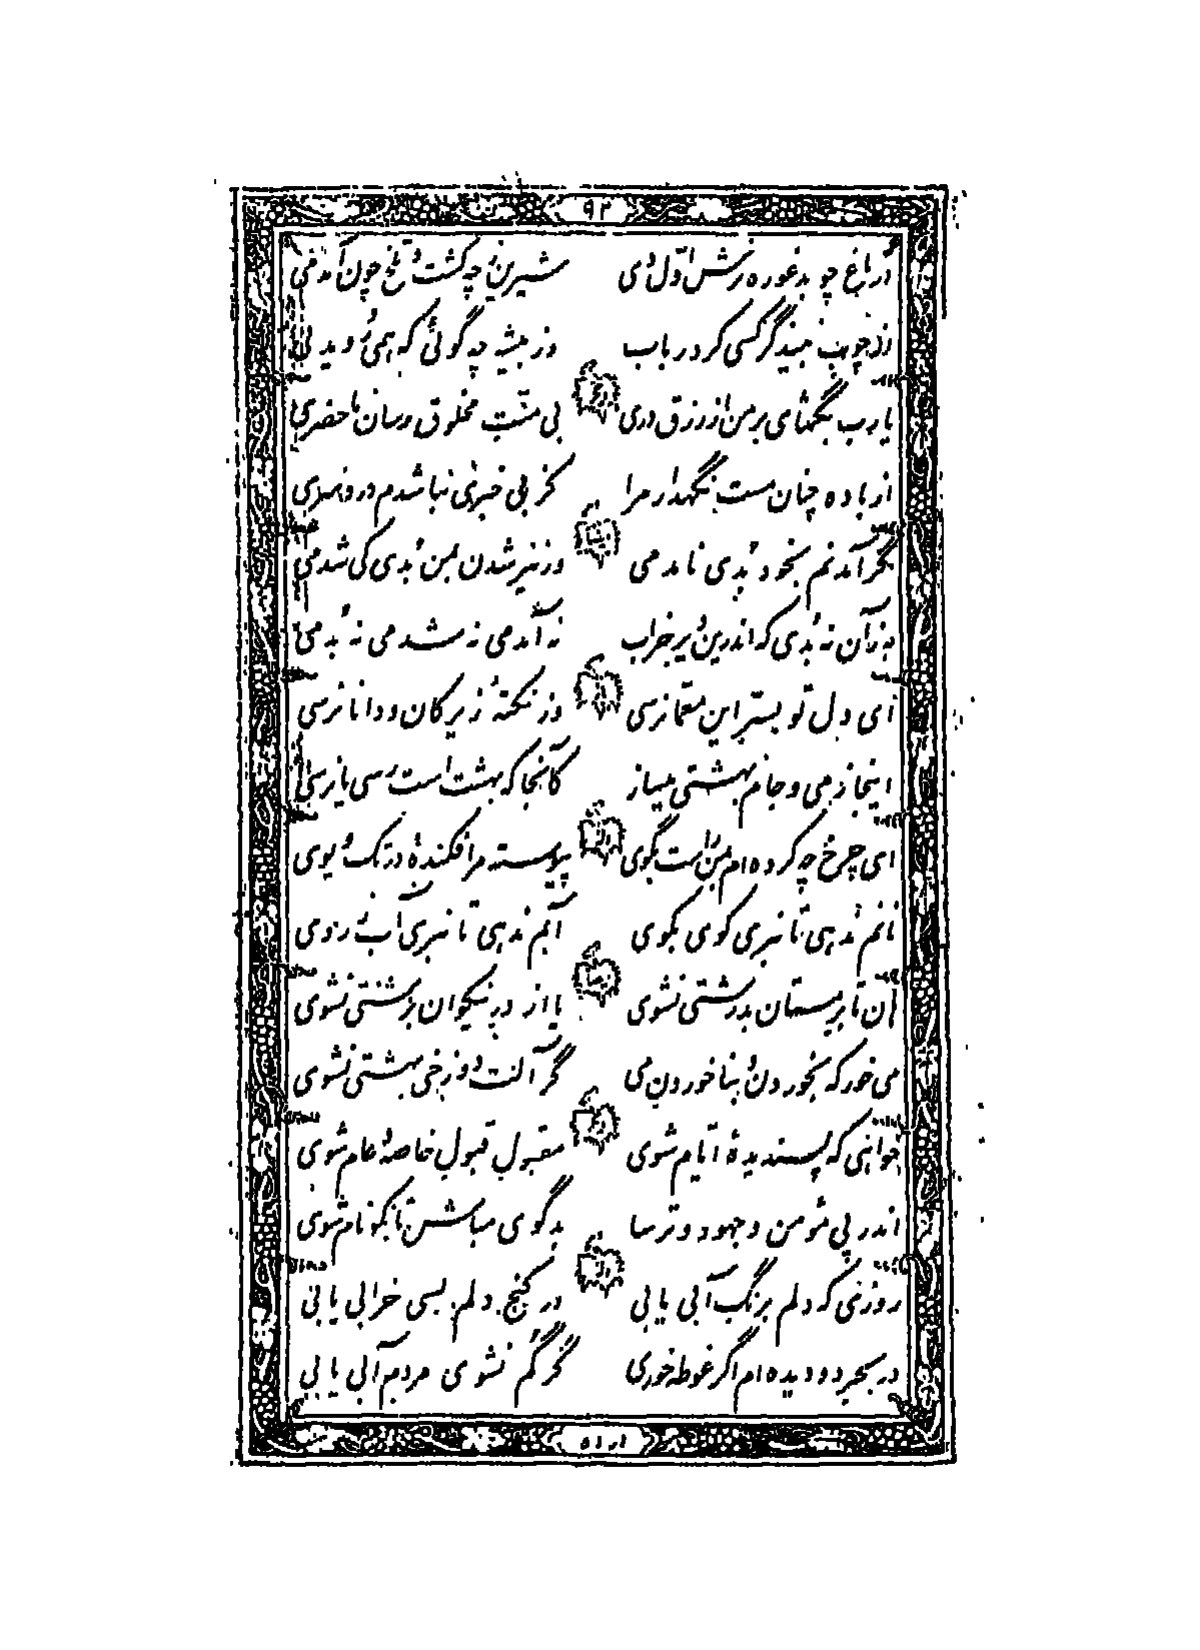 ۹۲
در باغ چو بد غوره ترش اول دی شیرین ز چه گشت و تلخ چون آمد می
از چوب به تیشه گر کسی کرد رباب وز تیشه چه گوئی که همی روید نی
یا رب بگشای بر من از رزق دری بی منت مخلوق رسان ما حضری
از باده چنان مست نگهدار مرا کز بی خبری نباشدم دردسری
گر آمدنم بخود بدی نامدمی ور نیز شدن بمن بدی کی شدمی
به زان نه بدی که اندرین دیر خراب نه آمدمی نه شدمی نه بدمی
ای دل تو بسر این معما نرسی وز نکته زیرکان و دانا نرسی
اینجا ز می و جام بهشتی میساز کانجا که بهشت است رسی یا نرسی
ای چرخ چه کرده‌ام بمن راست بگوی پیوسته مرا فکندهٔ در تک و پوی
نانم ندهی تا نبری کوی بکوی آبم ندهی تا نبری آب ز روی
آن تا بپرستان بدرشتی نشوی یا از در نیکوان بزشتی نشوی
می خور که بخوردن و بنا خوردن می گر آلت دوزخی بهشتی نشوی
خواهی که پسندیدهٔ ایام شوی مقبول قبول خاصه و عام شوی
اندر پی مؤمن و جهود و ترسا بدگوی مباش تا نکو نام شوی
روزی که دلم برنگ آبی یابی در کنج دلم بسی خرابی یابی
در بحر دو دیده‌ام اگر غوطه خوری گر گم نشوی مردم آبی یابی